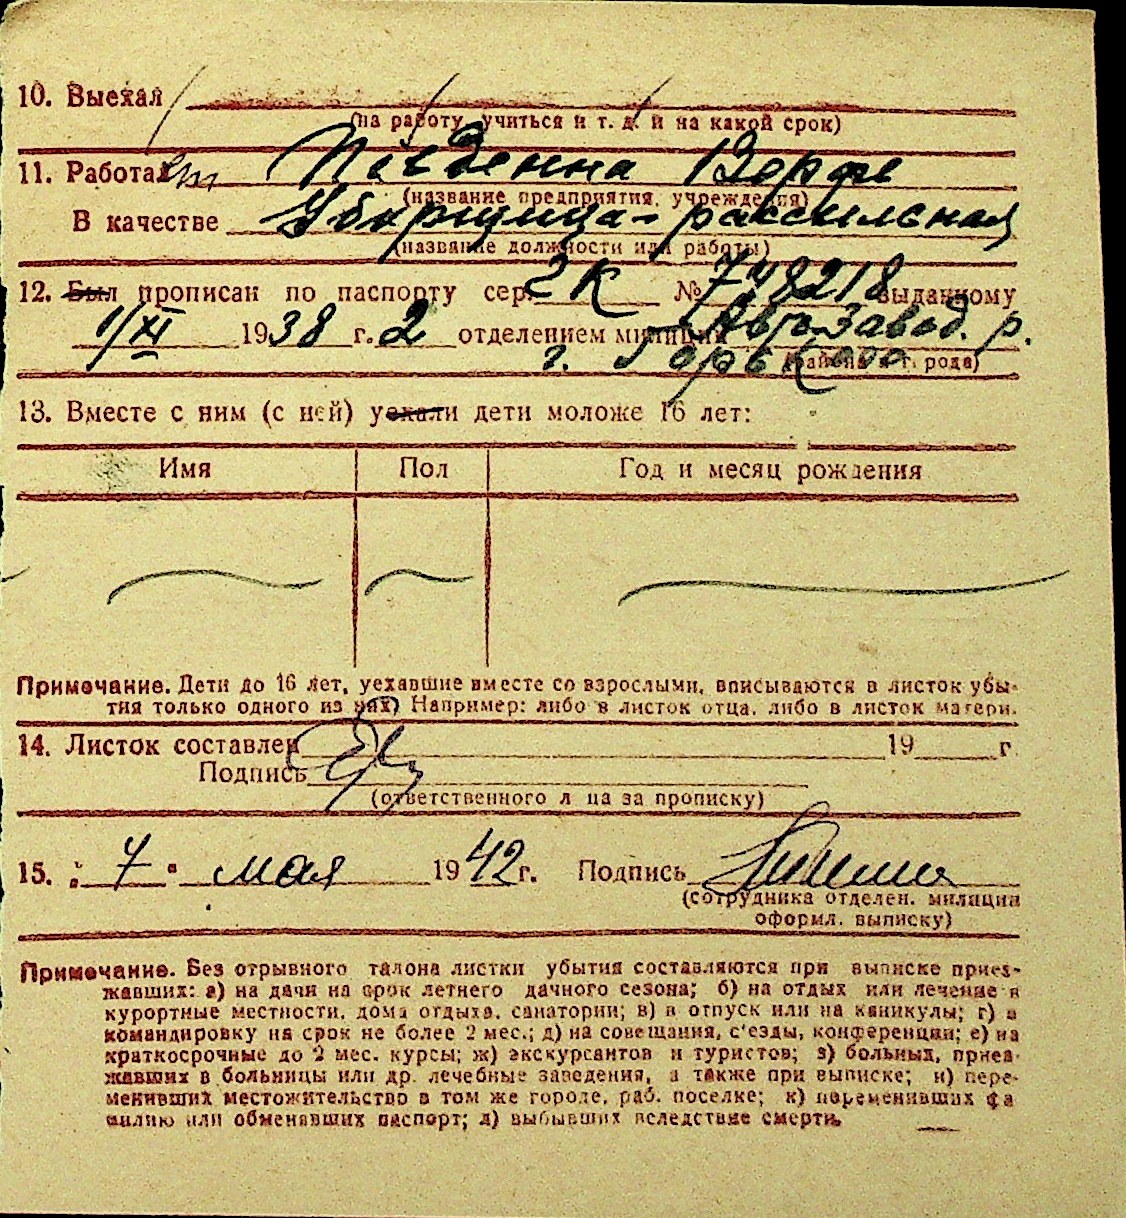 10. Выехал
(на работу, учиться и т. д. и на какой срок)
11. Работает
(название предприятия, учреждения)
В качестве Уборщица-рассыльная
(название должности или работы)
12. Был прописан по паспорту сер. 2К № 748218 выданному
1/XI 1938 г. 2 отделением милиции Авто-Завод. р.
г. Горького
(района и г. рода)
13. Вместе с ним (с ней) уехали дети моложе 16 лет:
Имя Пол Год и месяц рождения
Примечание. Дети до 16 лет, уехавшие вместе со взрослыми, вписываются в листок убы-
тия только одного из них) Например: либо в листок отца, либо в листок матери.
14. Листок составлен 19 г
Подпись
(ответственного л ца за прописку)
15. " 7 " мая 1942 г. Подпись
(сотрудника отделен. милиции
оформл. выписку)
Примечание. Без отрывного талона листки убытия составляются при выписке приез-
жавших: а) на дачи на срок летнего дачного сезона; б) на отдых или лечение в
курортные местности, дома отдыха, санатории; в) в отпуск или на каникулы; г) в
командировку на срок не более 2 мес.; д) на совещания, с'езды, конференции; е) на
краткосрочные до 2 мес. курсы; ж) экскурсантов и туристов; з) больных, приез-
жавших в больницы или др. лечебные заведения, а также при выписке; и) пере-
менивших местожительство в том же городе, раб. поселке; к) переменивших фа
милию или обменявших паспорт; л) выбывших вследствие смерти.